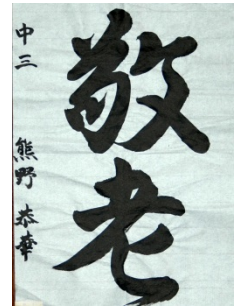 敬老
中三 熊野恭華